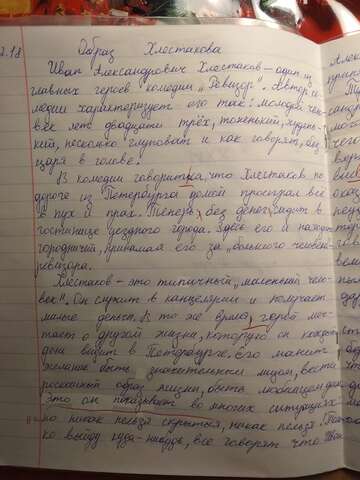 2.18
Образ Хлестакова
Иван Александрович Хлестаков – один из
главных героев комедии „Ревизор". Автор
медии характеризует его так: молодой чел-
век лет двадцати трёх, тоненький, худень-
кий, несколько глуповат и как говорят, без
царя в голове.
В комедии говорится, что Хлестаков, по
дороге из Петербурга домой проиграл всё
в пух и прах. Теперь, без денег, сидит в
гостинице уездного города. Здесь его и находит
городничий, принимая его за „большого человек
ревизора.
Хлестаков – это типичный „маленький чело-
век". Он служит в канцелярии и получает
малые деньги. В то же время, герой меч-
тает о другой жизни, которую он каждый
день видит в Петербурге. Его манит
желание быть значительным лицом, вести
роскошный образ жизни, быть любимцем дам
Это он показывает во многих ситуациях
но никак нельзя скрыться, никак нельзя! Толь
ко выйду куда-нибудь, все говорят что Иван